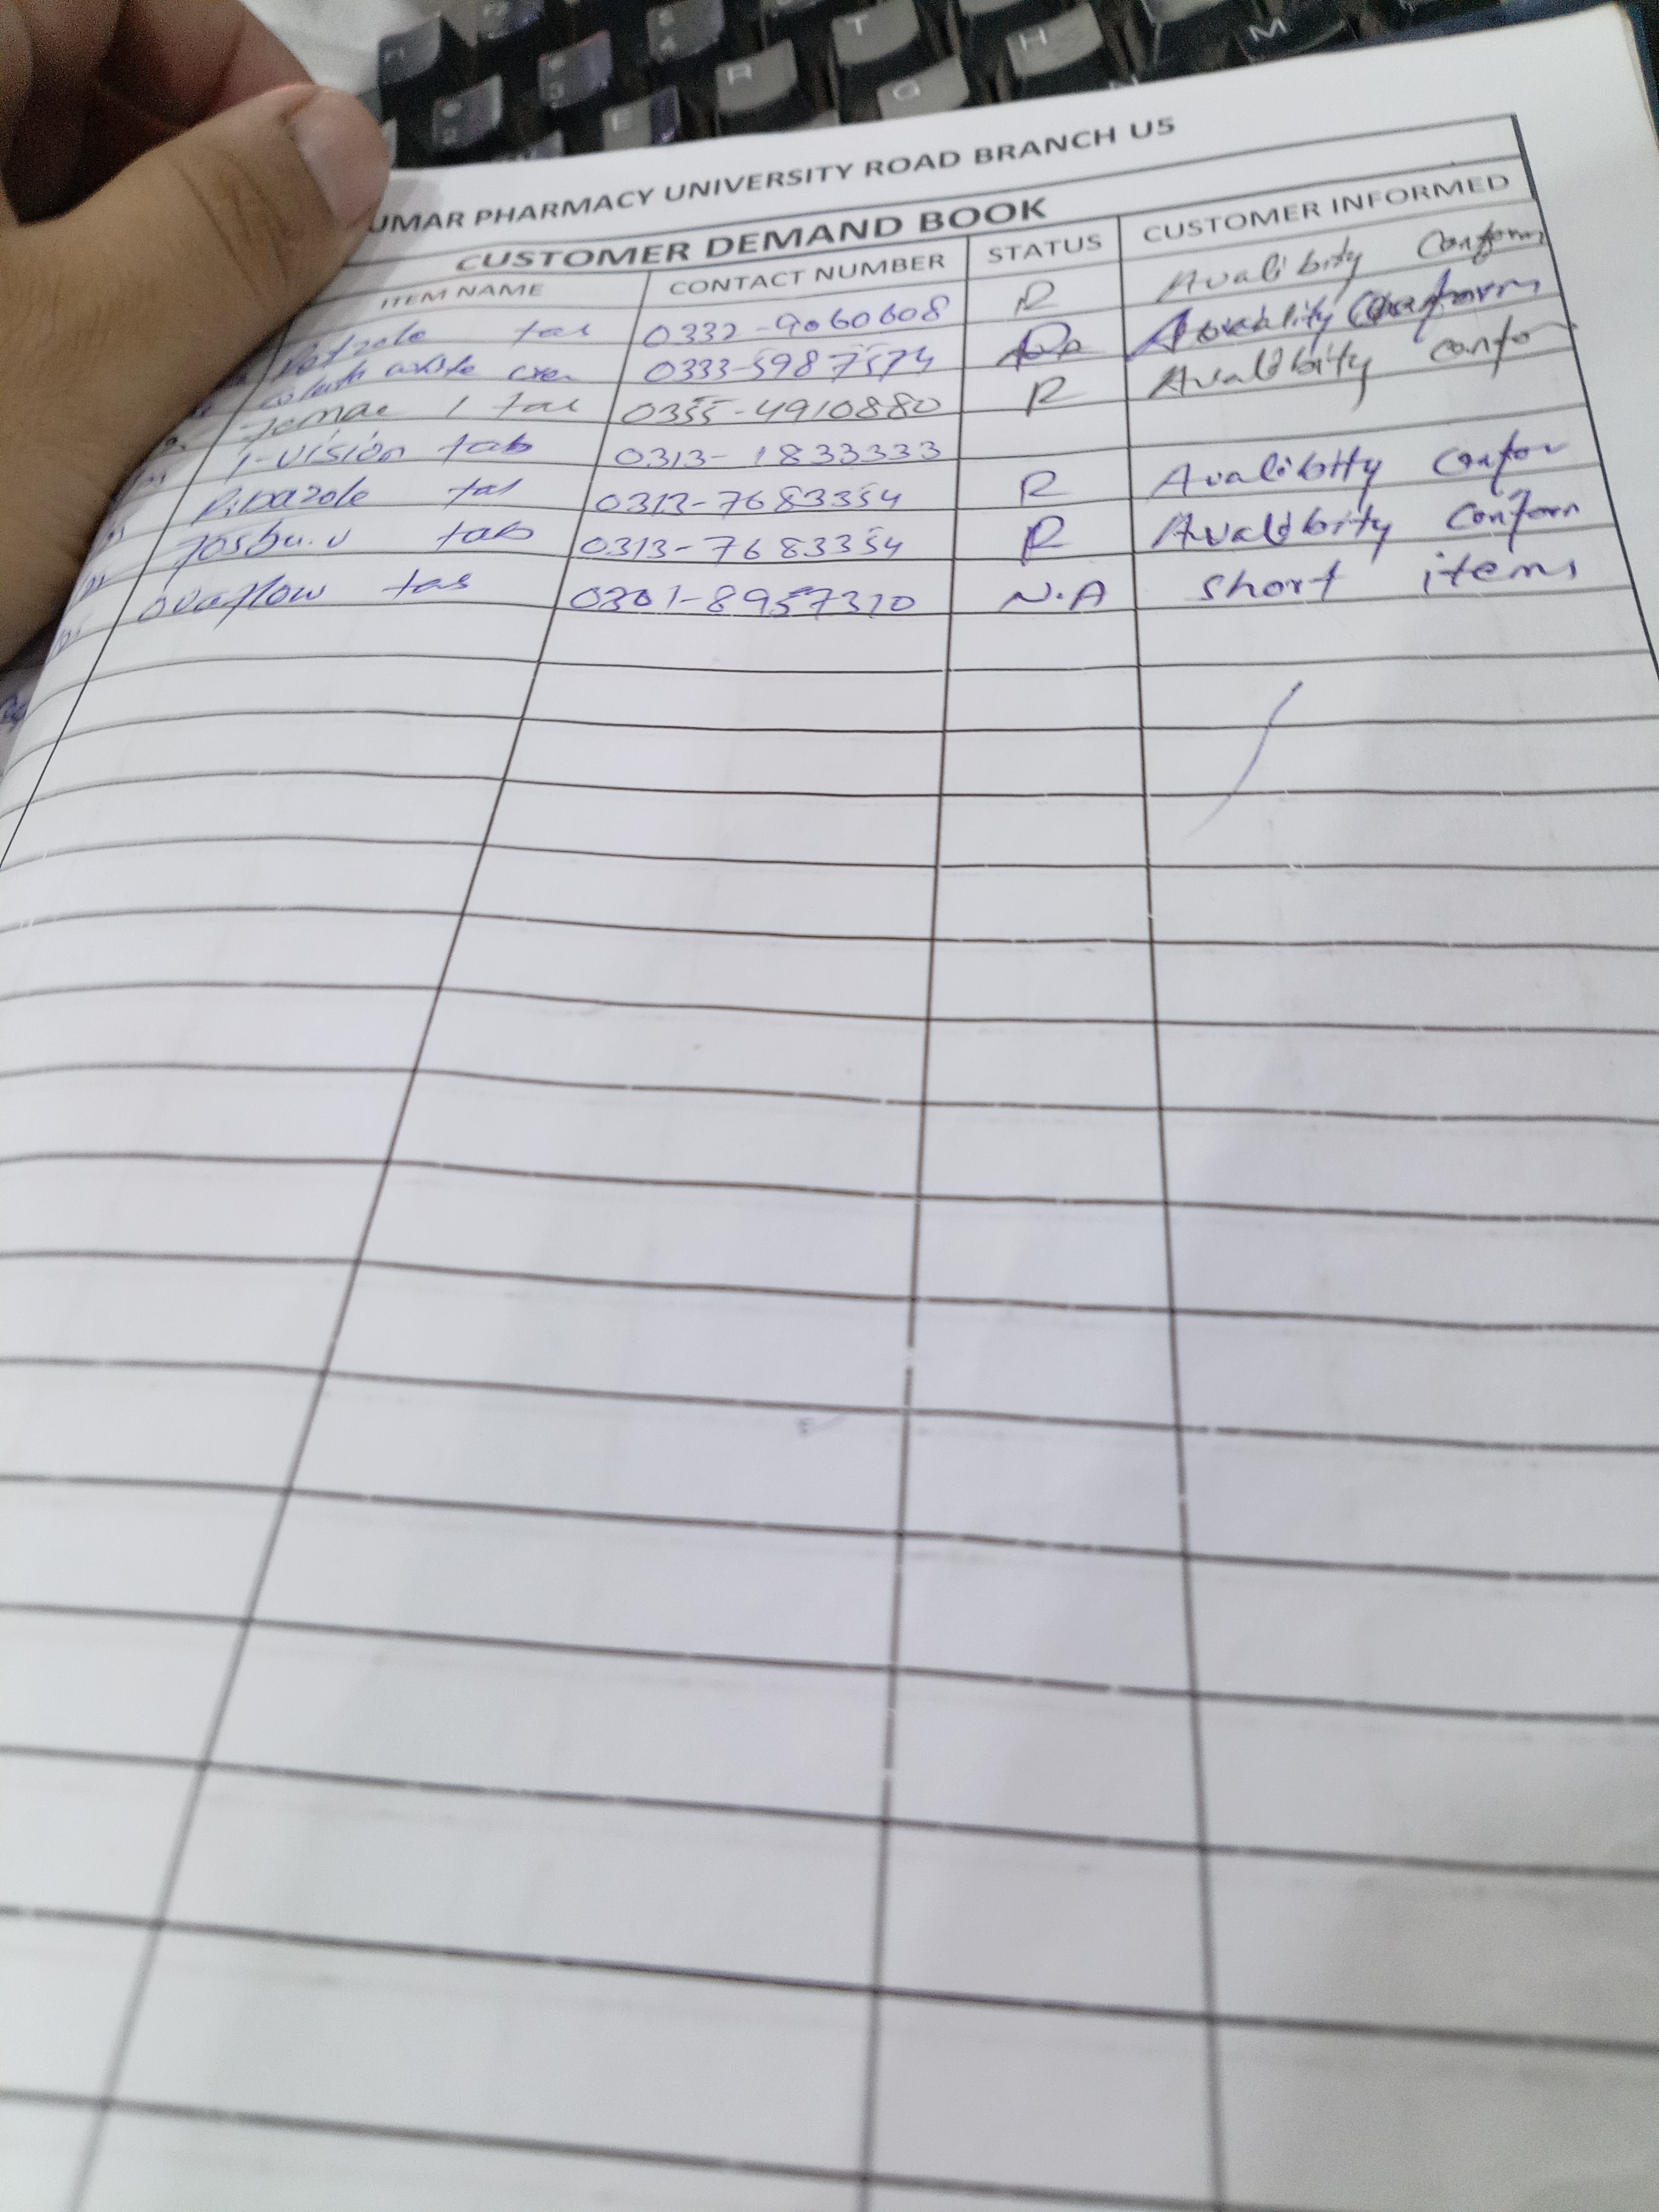 UMAR PHARMACY UNIVERSITY ROAD BRANCH U5
CUSTOMER DEMAND BOOK
ITEM NAME CONTACT NUMBER STATUS CUSTOMER INFORMED
tas 0332-9060608 R Avalibity Conform
white 0333-5987574 Avalability Conform
1 tas 0355-4910880 R Avalibity confo
i-vision tab 0313-1833333
Ribazole tas 0313-7683354 R Avalibity Confor
tab 0313-7683354 R Avalibity Conform
ovaflow tas 0301-8957310 N.A short items